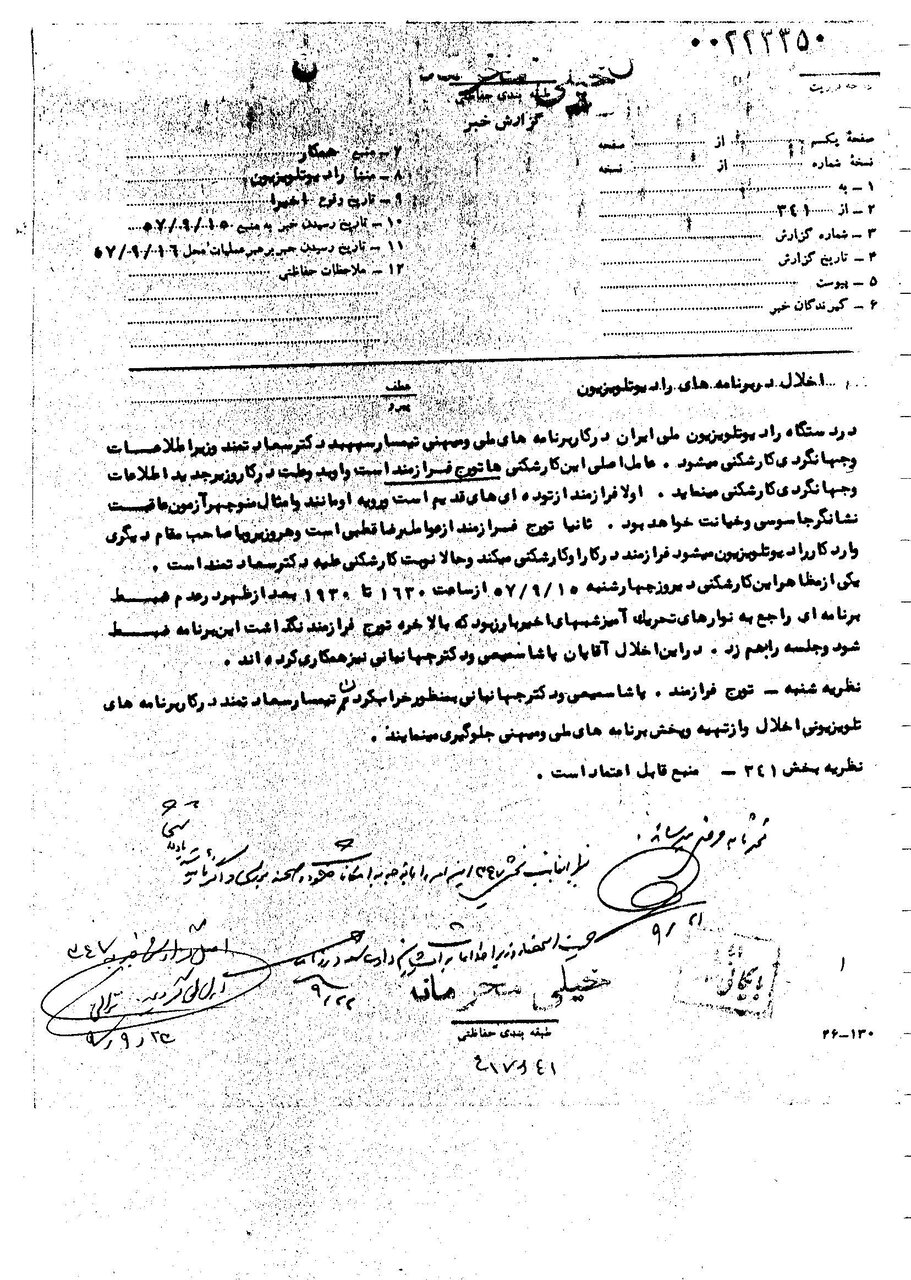 ۰۰۲۲۳۳۵۰
خیلی
طبقه بندی حفاظتی
گزارش خبر
صفحهٔ یکم از صفحه
نسخهٔ شماره از نسخه
۱ـ به
۲ـ از ۳٤۱
۳ـ شماره گزارش
۴ـ تاریخ گزارش
۵ـ پیوست
۶ـ گیرندگان خبر
۷ـ منبع همکار
۸ـ منشا رادیوتلویزیون
۹ـ تاریخ وقوع اخیرا
۱۰ـ تاریخ رسیدن خبر به منبع ۵۷/۹/۱۵
۱۱ـ تاریخ رسیدن خبر برهبر عملیات محل ۵۷/۹/۱۶
۱۲ـ ملاحظات حفاظتی
اخلال در برنامه های رادیوتلویزیون
عطف
پیرو
در دستگاه رادیوتلویزیون ملی ایران در کار برنامه های ملی و میهنی تیمسار سپهبد دکتر سعادتمند وزیر اطلاعات
و جهانگردی کارشکنی میشود . عامل اصلی این کارشکنی ها تورج فرازمند است و اوبدوعلت در کار وزیر جدید اطلاعات
و جهانگردی کارشکنی مینماید . اولا فرازمند از توده ای های قدیم است و رویه او مانند و امثال منوچهر آزمون عاقبت
نشانگر جاسوسی و خیانت خواهد بود . ثانیا تورج فرازمند از عوامل رضا قطبی است و هر وزیر و یا صاحب مقام دیگری
وارد کار رادیوتلویزیون میشود فرازمند در کار او کارشکنی میکند و حالا نوبت کارشکنی علیه دکتر سعادتمند است .
یکی از مظاهر این کارشکنی دیروز چهارشنبه ۵۷/۹/۱۵ از ساعت ۱۶۳۰ تا ۱۹۳۰ بعد از ظهر در عدم ضبط
برنامه ای راجع به نوارهای تحریک آمیز شبهای اخیر بارز بود که بالاخره تورج فرازمند نگذاشت این برنامه ضبط
شود و جلسه را بهم زد . در این اخلال آقایان پاشا سمیعی و دکتر جهانبانی نیز همکاری کرده اند .
نظریه شنبه ـ تورج فرازمند . پاشا سمیعی و دکتر جهانبانی بمنظور خراب کردن تیمسار سعادتمند در کار برنامه های
تلویزیونی اخلال و از تهیه و پخش برنامه های ملی و میهنی جلوگیری مینمایند .
نظریه بخش ۳٤۱ ـ منبع قابل اعتماد است .
۹/۲۱
۹/۲۲
خیلی محرمانه
بایگانی
طبقه بندی حفاظتی
۲۶-۱۳۰